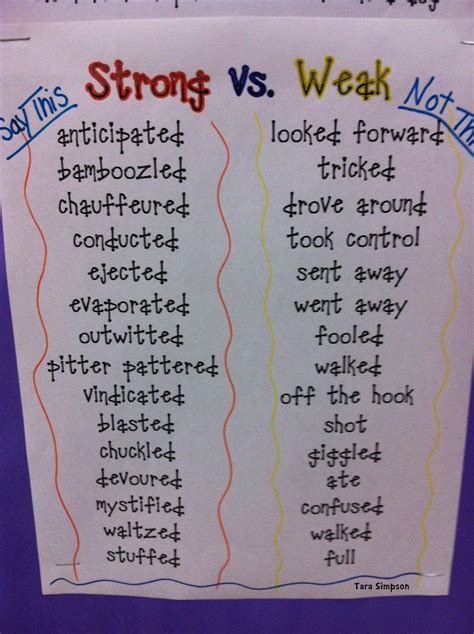 Say This Strong vs. Weak Not Th
anticipated looked forward
bamboozled tricked
chauffeured drove around
conducted took control
ejected sent away
evaporated went away
outwitted fooled
pitter pattered walked
vindicated off the hook
blasted shot
chuckled giggled
devoured ate
mystified confused
waltzed walked
stuffed full
Tara Simpson